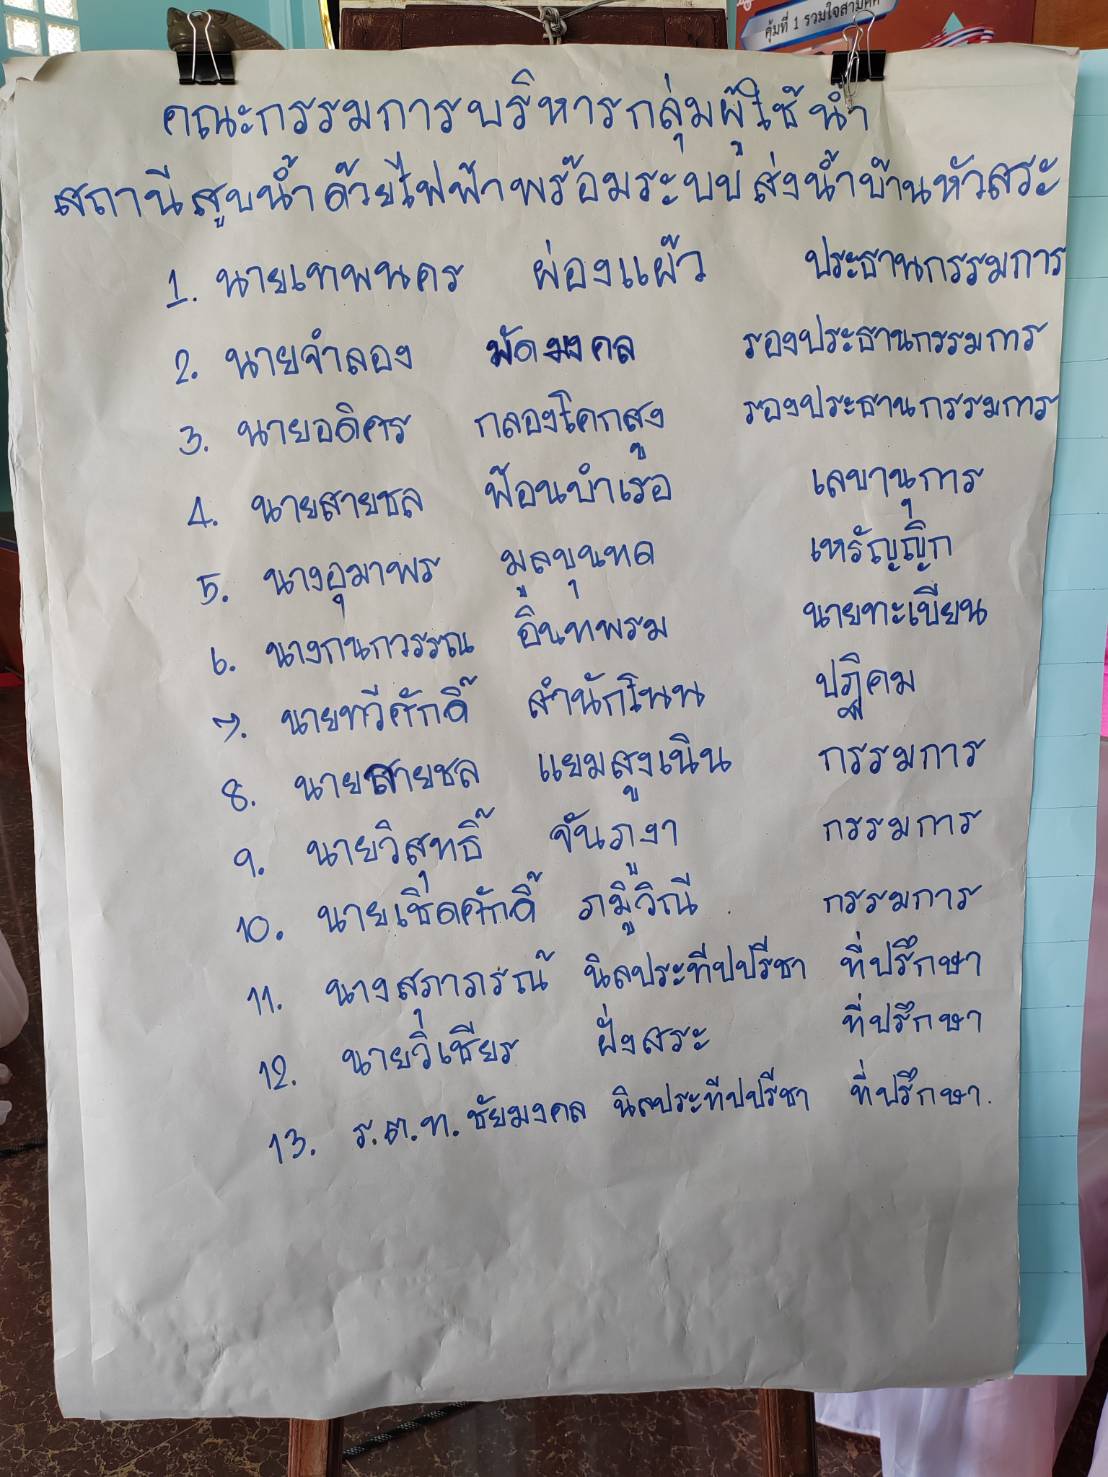 คุ้มที่ 1 รวมใจสามัคคี
คณะกรรมการบริหารกลุ่มผู้ใช้น้ำ
สถานีสูบน้ำด้วยไฟฟ้าพร้อมระบบส่งน้ำบ้านหัวสระ
1. นายเทพนคร ผ่องแผ้ว ประธานกรรมการ
2. นายจำลอง พัดมงคล รองประธานกรรมการ
3. นายอดิศร กลองโคกสูง รองประธานกรรมการ
4. นายสายชล ฟ้อนบำเรอ เลขานุการ
5. นางอุมาพร มูลขุนทด เหรัญญิก
6. นางกนกวรรณ อินทพรม นายทะเบียน
7. นายทวีศักดิ์ สำนักโนน ปฏิคม
8. นายสายชล แยมสูงเนิน กรรมการ
9. นายวิสุทธิ์ จันภูงา กรรมการ
10. นายเชิดศักดิ์ ภูมิวิณี กรรมการ
11. นางสุภาภรณ์ นิลประทีปปรีชา ที่ปรึกษา
12. นายวิเชียร ฝั่งสระ ที่ปรึกษา
13. ร.ต.ท. ชัยมงคล นิลประทีปปรีชา ที่ปรึกษา.